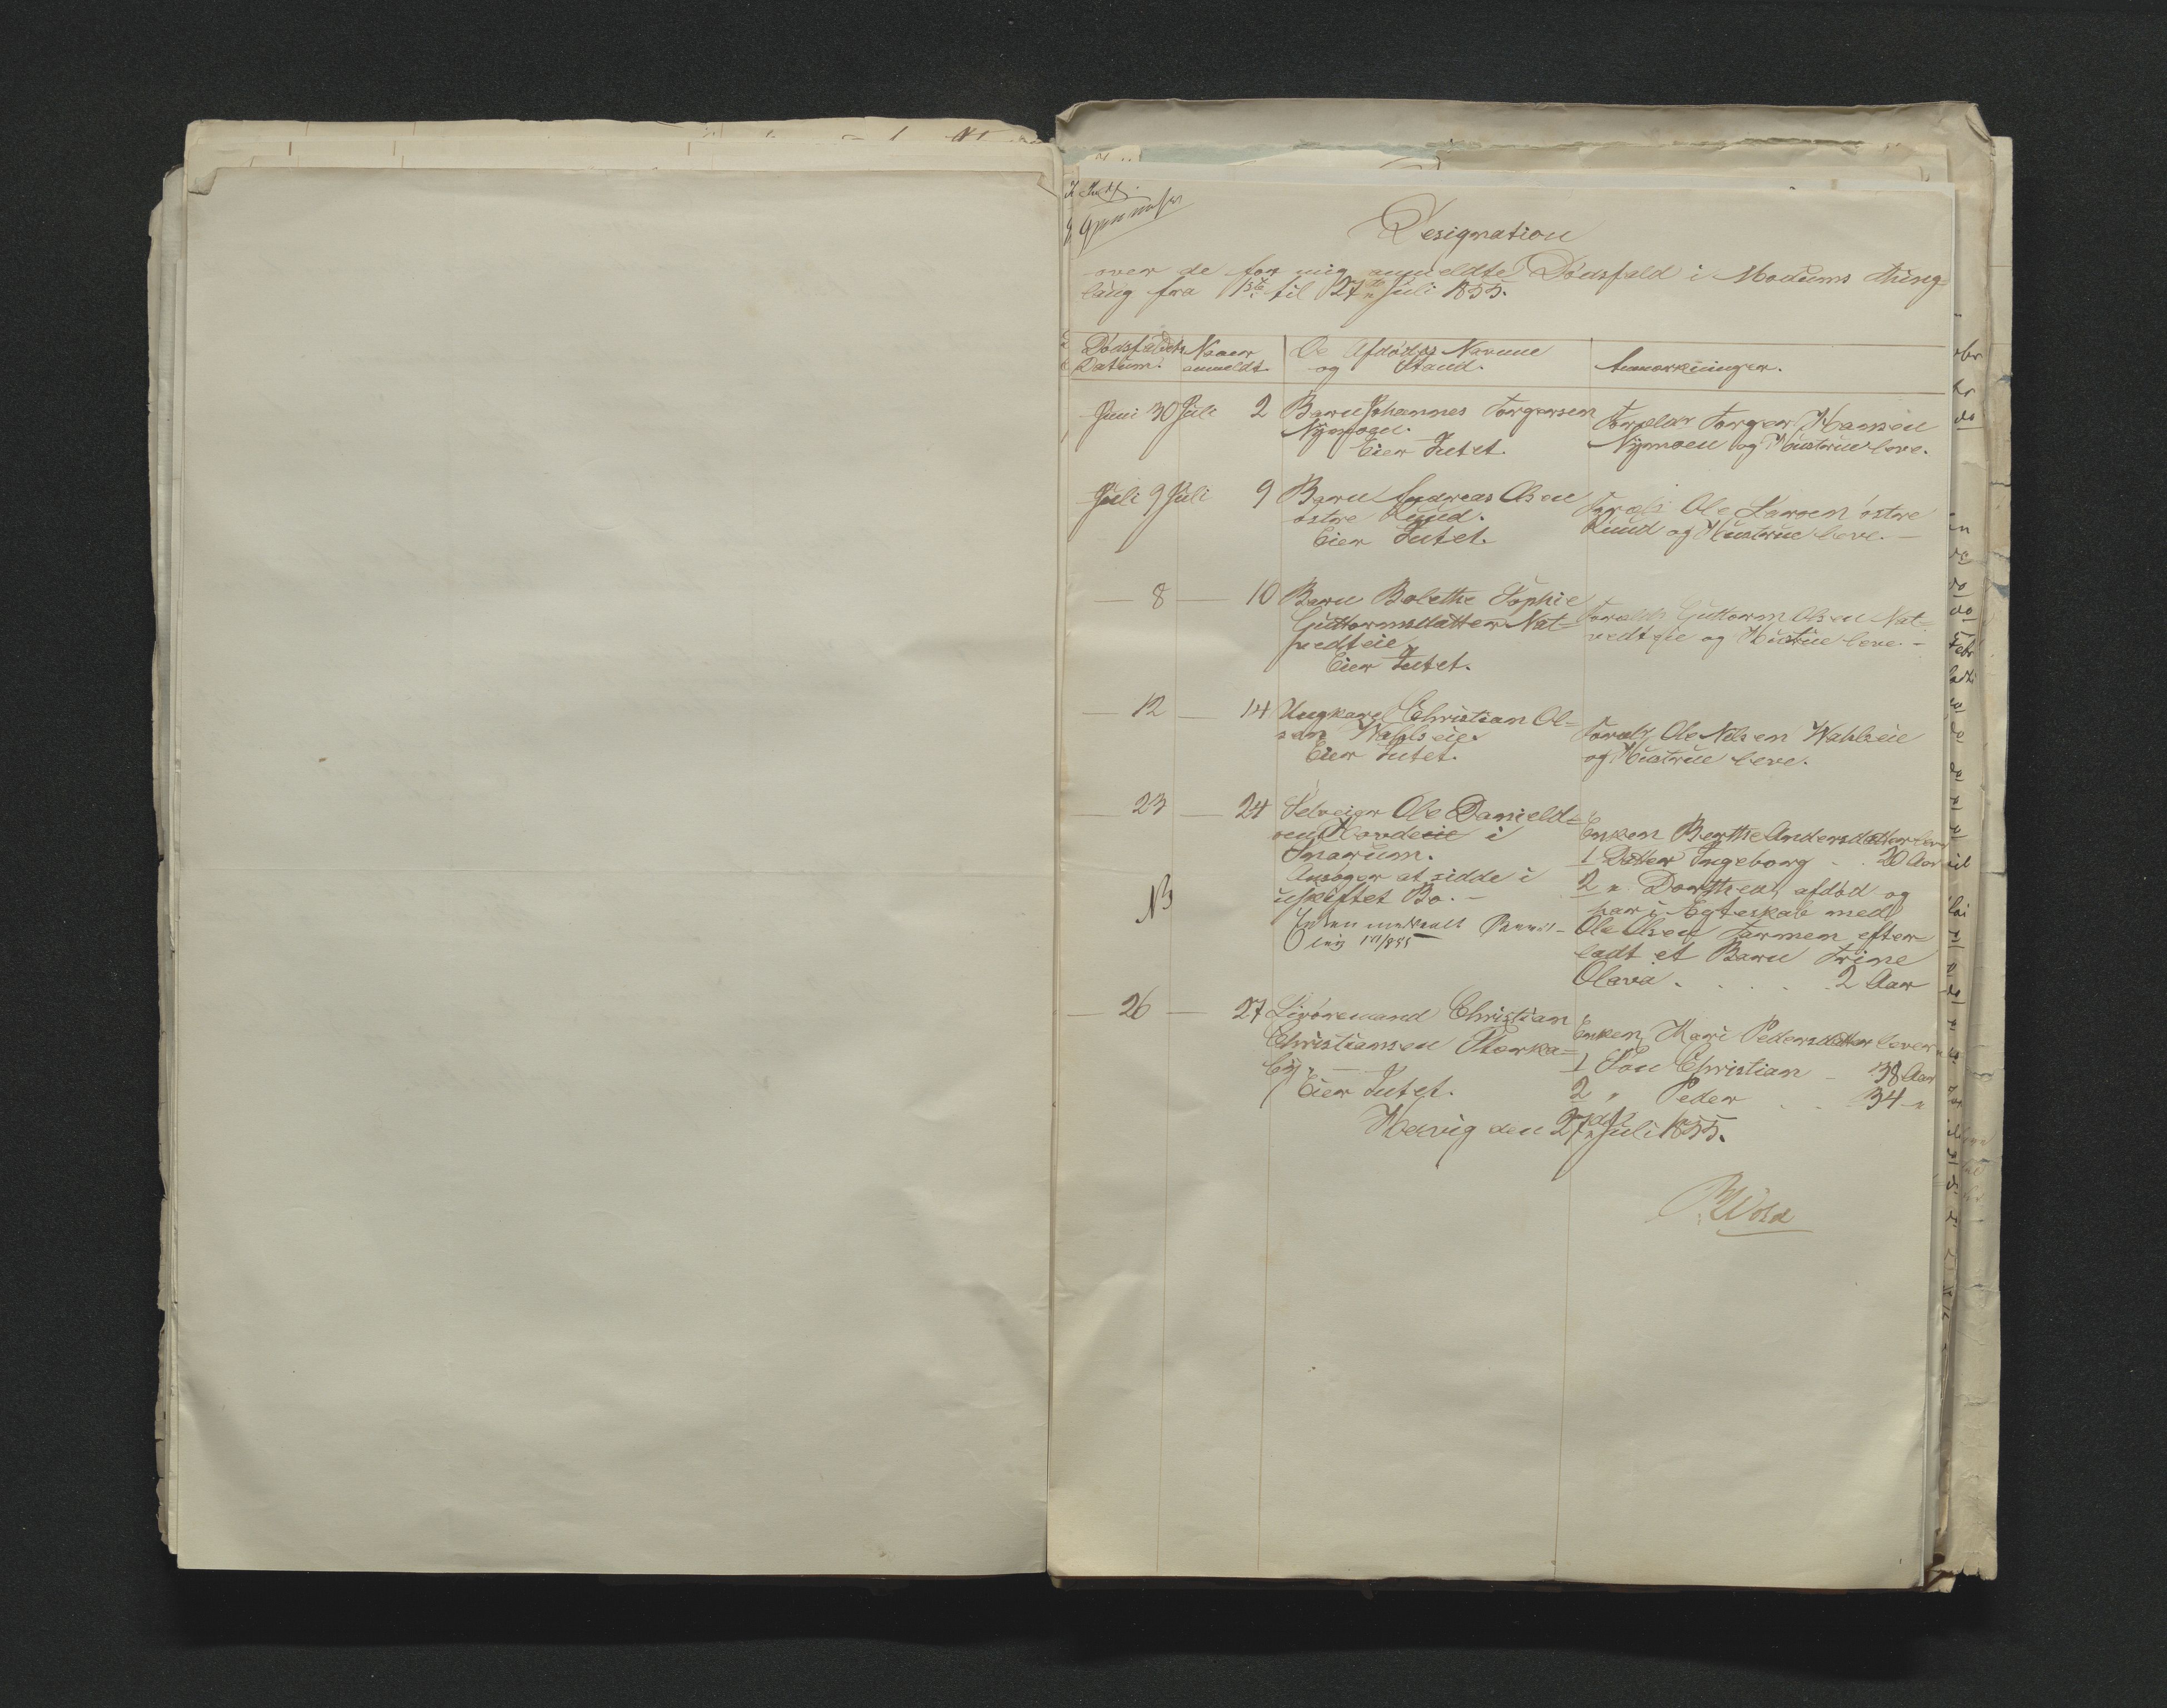 Designation
over de for mig anmeldte Dødsfald i Modums Thing=
laug fra 1ste til 27de Juli 1855.
Dødsfaldets Datum. Naar anmeldt. De Afdødes Navne og Stand. Anmærkninger.
Juni 30 Juli 2 Barn Johannes Torgersen
Nymoen.
Eier Intet.
Forældr Torger Hansen
Nymoen og Hustrue leve.
Juli 9 Juli 9 Barn Andreas Olsen
østre Ruud.
Eier Intet.
Foræld: Ole Larsen østre
Ruud og Hustrue leve. —
— 8 — 10 Barn Bolethe Sophie
Guttormsdatter Nat=
vedteie.
Eier Intet.
Foræld: Guttorm Olsen Nat=
vedteie og Hustrue leve. —
— 12 — 14 Ungkarl Christian Ol=
sen Wahlseie.
Eier Intet.
Foræld: Ole Nilsen Wahlseie
og Hustrue leve.
— 23 — 24 Selveier Ole Danield=
sen Hovdeeie i
Snarum.
Ansøger at sidde i
uskiftet Bo. —
NB
Enken Berthe Andersdatter lever
1 Datter Ingeborg . . 20 Aar
2 " Dorthea, afdød og
har i Egteskab med
Ole Olsen Tormen efter
ladt et Barn Trine
Olava . . . . . 2 Aar
— 26 — 27 Livøremand Christian
Christiansen Storka=
by. —
Eier Intet.
Enken Mari Pedersdatter lever
1 Søn Christian — 38 Aar
2 " Peder . . 34 "
Hervig den 27de Juli 1855.
B Wold